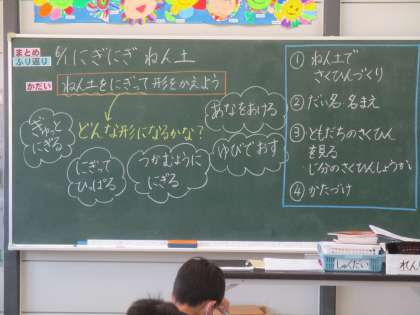 まとめ
ふり返り
6/1 にぎにぎ ねん土
かだい
ねん土をにぎって形をかえよう
どんな形になるかな?
ぎゅっと
にぎる
にぎって
ひっぱる
つかむように
にぎる
あなをあける
ゆびでおす
① ねん土で
さくひんづくり
② だい名・名まえ
③ ともだちのさくひん
を見る
じ分のさくひんしょうかい
④ かたづけ
しゅくだい
れん